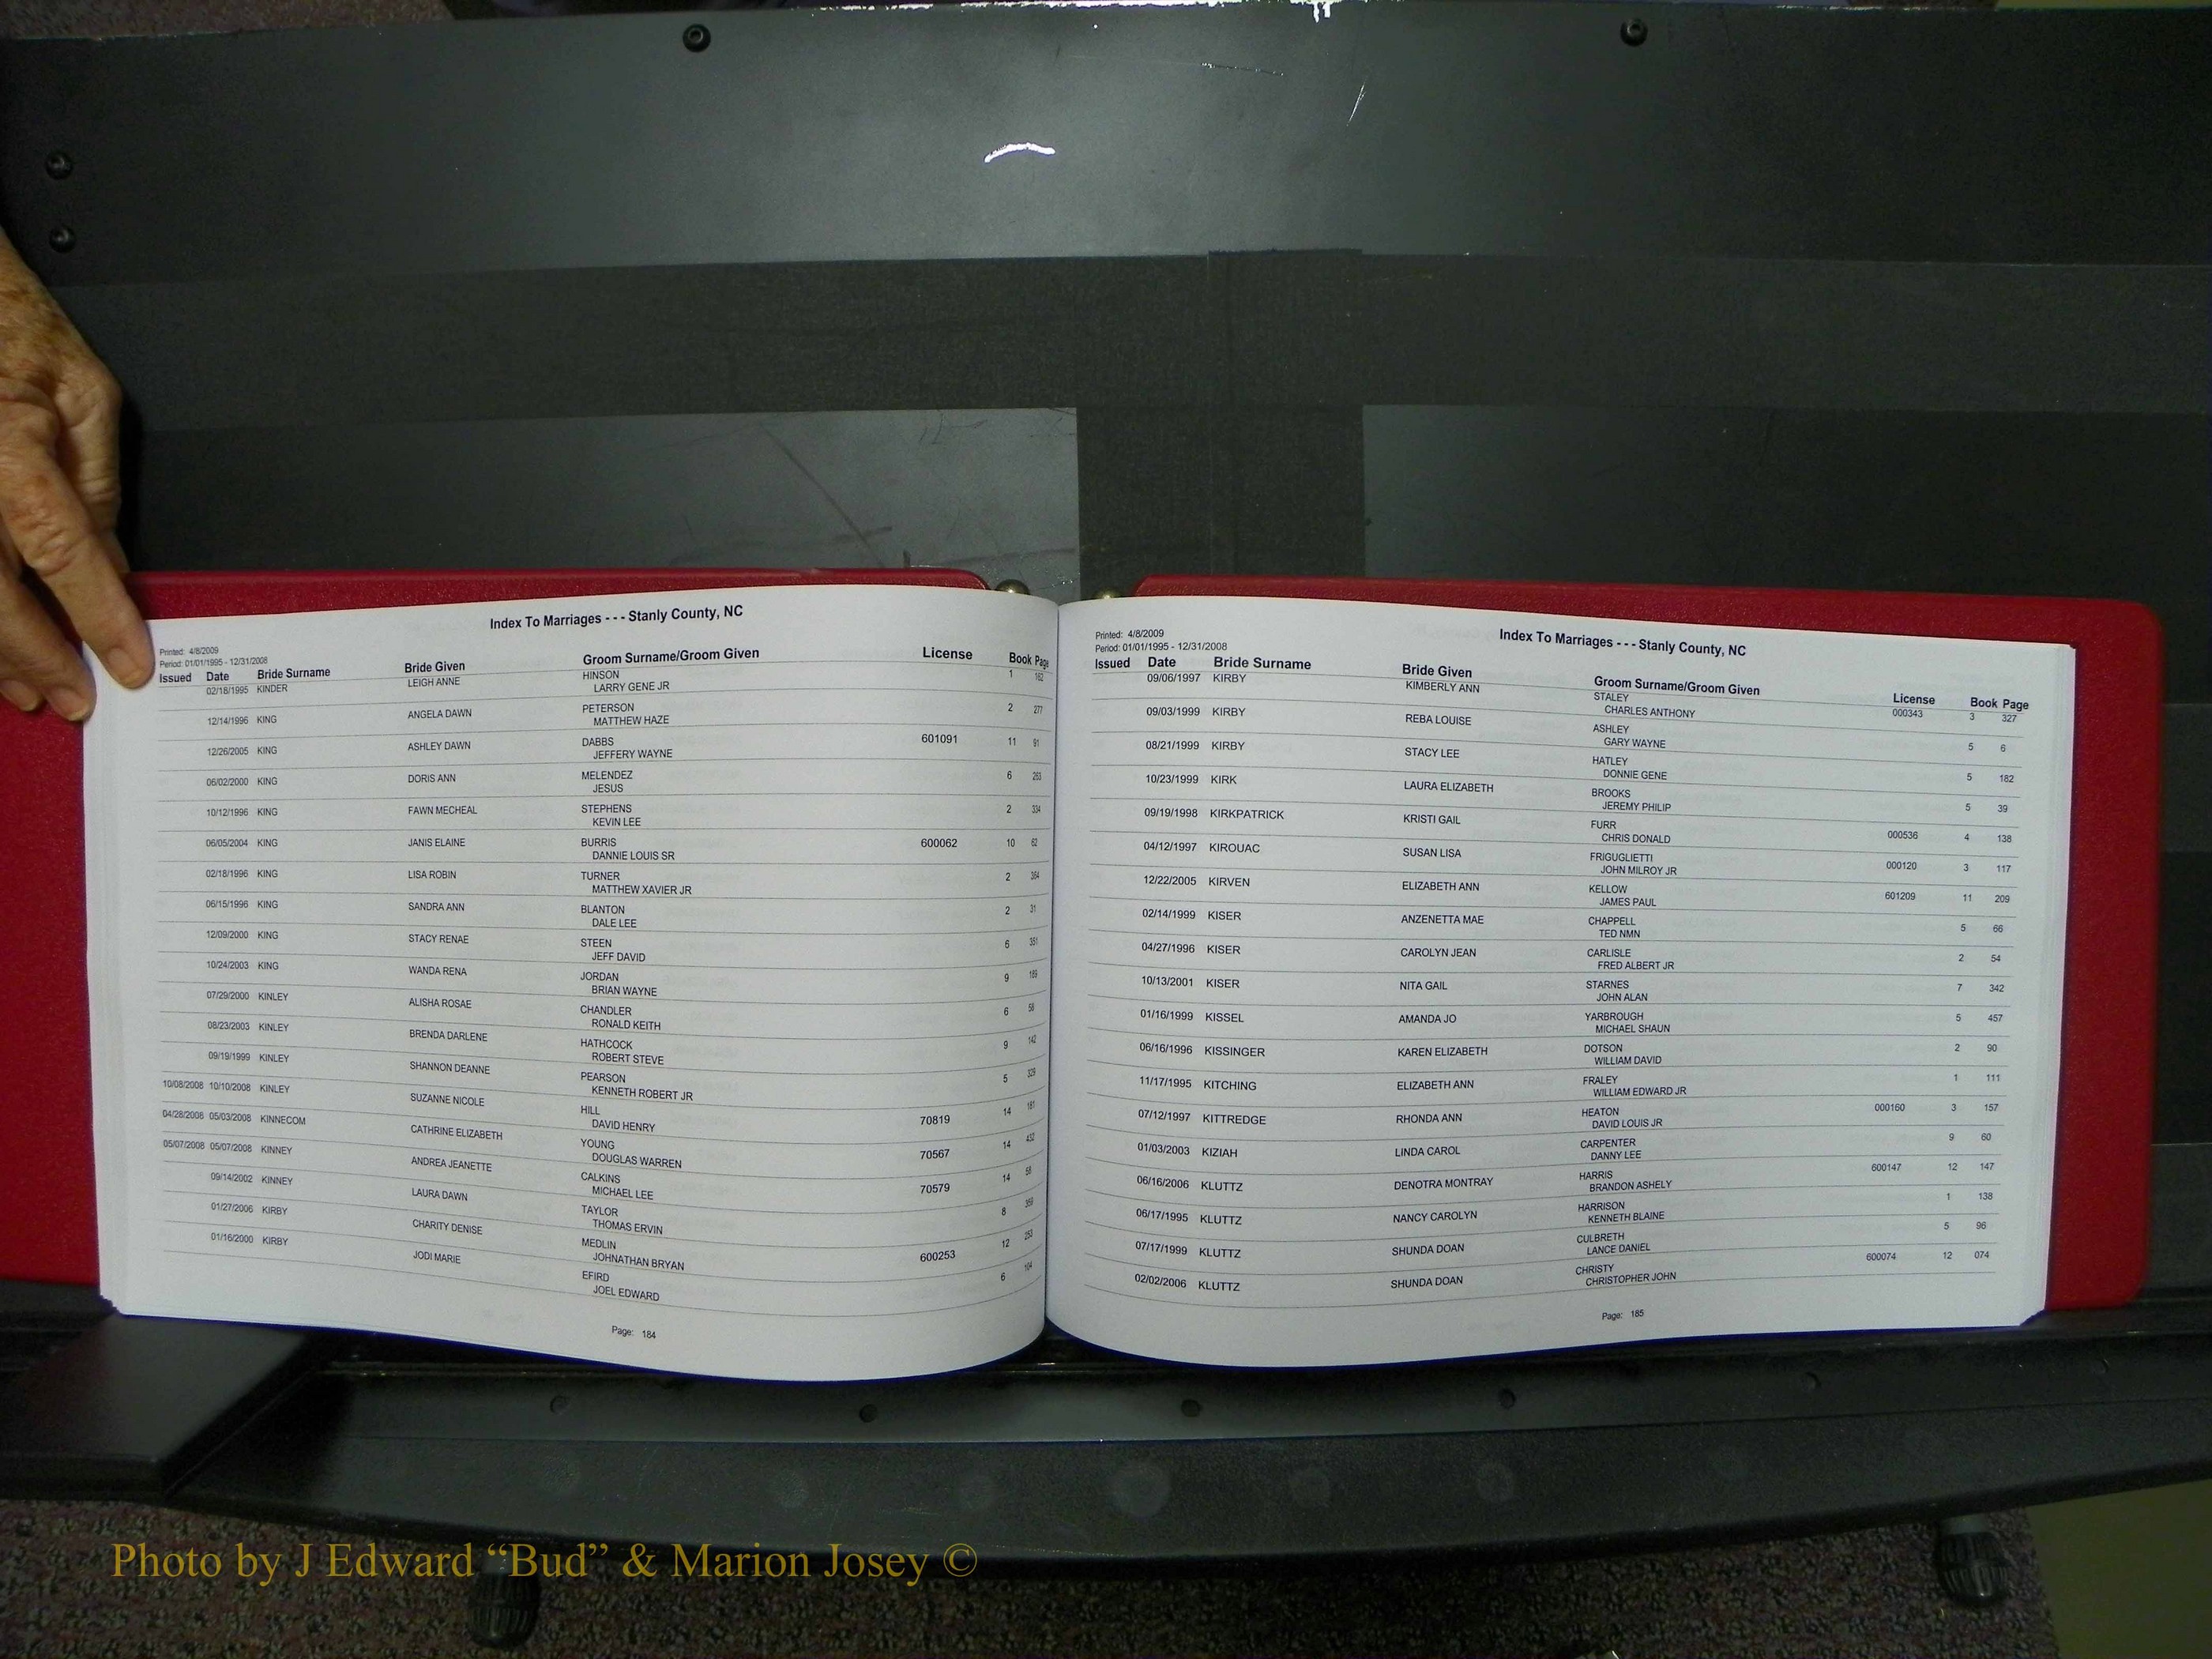 Index To Marriages - - - Stanly County, NC
Printed: 4/8/2009
Period: 01/01/1995 - 12/31/2008
Issued Date Bride Surname Bride Given Groom Surname/Groom Given License Book Page
02/18/1995 KINDER LEIGH ANNE HINSON 1 162
LARRY GENE JR
12/14/1996 KING ANGELA DAWN PETERSON 2 277
MATTHEW HAZE
12/26/2005 KING ASHLEY DAWN DABBS 601091 11 91
JEFFERY WAYNE
06/02/2000 KING DORIS ANN MELENDEZ 6 263
JESUS
10/12/1996 KING FAWN MECHEAL STEPHENS 2 334
KEVIN LEE
06/05/2004 KING JANIS ELAINE BURRIS 600062 10 62
DANNIE LOUIS SR
02/18/1996 KING LISA ROBIN TURNER 2 364
MATTHEW XAVIER JR
06/15/1996 KING SANDRA ANN BLANTON 2 31
DALE LEE
12/09/2000 KING STACY RENAE STEEN 6 351
JEFF DAVID
10/24/2003 KING WANDA RENA JORDAN 9 189
BRIAN WAYNE
07/29/2000 KINLEY ALISHA ROSAE CHANDLER 6 56
RONALD KEITH
08/23/2003 KINLEY BRENDA DARLENE HATHCOCK 9 142
ROBERT STEVE
09/19/1999 KINLEY SHANNON DEANNE PEARSON 5 329
KENNETH ROBERT JR
10/08/2008 10/10/2008 KINLEY SUZANNE NICOLE HILL 70819 14 181
DAVID HENRY
04/28/2008 05/03/2008 KINNECOM CATHRINE ELIZABETH YOUNG 70567 14 432
DOUGLAS WARREN
05/07/2008 05/07/2008 KINNEY ANDREA JEANETTE CALKINS 70579 14 58
MICHAEL LEE
09/14/2002 KINNEY LAURA DAWN TAYLOR 8 359
THOMAS ERVIN
01/27/2006 KIRBY CHARITY DENISE MEDLIN 600253 12 253
JOHNATHAN BRYAN
01/16/2000 KIRBY JODI MARIE EFIRD 6 104
JOEL EDWARD
Page: 184
Index To Marriages - - - Stanly County, NC
Printed: 4/8/2009
Period: 01/01/1995 - 12/31/2008
Issued Date Bride Surname Bride Given Groom Surname/Groom Given License Book Page
09/06/1997 KIRBY KIMBERLY ANN STALEY 000343 3 327
CHARLES ANTHONY
09/03/1999 KIRBY REBA LOUISE ASHLEY 5 6
GARY WAYNE
08/21/1999 KIRBY STACY LEE HATLEY 5 182
DONNIE GENE
10/23/1999 KIRK LAURA ELIZABETH BROOKS 5 39
JEREMY PHILIP
09/19/1998 KIRKPATRICK KRISTI GAIL FURR 000536 4 138
CHRIS DONALD
04/12/1997 KIROUAC SUSAN LISA FRIGUGLIETTI 000120 3 117
JOHN MILROY JR
12/22/2005 KIRVEN ELIZABETH ANN KELLOW 601209 11 209
JAMES PAUL
02/14/1999 KISER ANZENETTA MAE CHAPPELL 5 66
TED NMN
04/27/1996 KISER CAROLYN JEAN CARLISLE 2 54
FRED ALBERT JR
10/13/2001 KISER NITA GAIL STARNES 7 342
JOHN ALAN
01/16/1999 KISSEL AMANDA JO YARBROUGH 5 457
MICHAEL SHAUN
06/16/1996 KISSINGER KAREN ELIZABETH DOTSON 2 90
WILLIAM DAVID
11/17/1995 KITCHING ELIZABETH ANN FRALEY 1 111
WILLIAM EDWARD JR
07/12/1997 KITTREDGE RHONDA ANN HEATON 000160 3 157
DAVID LOUIS JR
01/03/2003 KIZIAH LINDA CAROL CARPENTER 9 60
DANNY LEE
06/16/2006 KLUTTZ DENOTRA MONTRAY HARRIS 600147 12 147
BRANDON ASHELY
06/17/1995 KLUTTZ NANCY CAROLYN HARRISON 1 138
KENNETH BLAINE
07/17/1999 KLUTTZ SHUNDA DOAN CULBRETH 5 96
LANCE DANIEL
02/02/2006 KLUTTZ SHUNDA DOAN CHRISTY 600074 12 074
CHRISTOPHER JOHN
Page: 185
Photo by J Edward “Bud” & Marion Josey ©